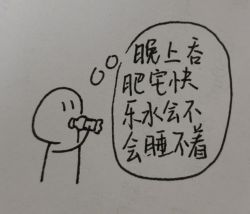 晚上吞
肥宅快
乐水会不
会睡不着